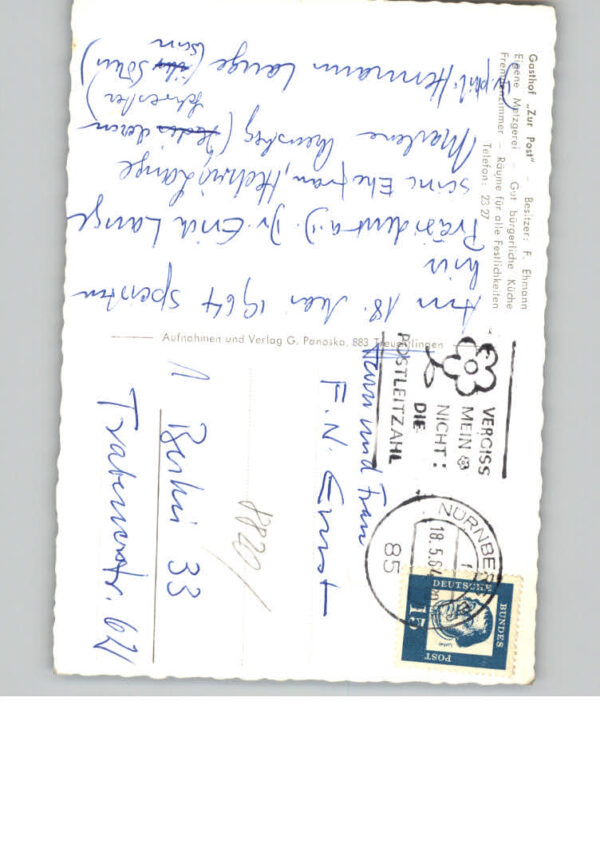 Gasthof „Zur Post" – Besitzer: F. Ehmann
Eigene Metzgerei – Gut bürgerliche Küche
Fremdenzimmer – Räume für alle Festlichkeiten
Telefon: 23 27
Am 18. Mai 1964 speisten
hier
Präsident a.D. Dr. Erich Lange
seine Ehefrau, Hedwig Lange
Marlene (deren
Schwester)
Dr. phil. Hermann Lange (Sohn)
Aufnahmen und Verlag G. Panoska, 883 Treuchtlingen
VERGISS
MEIN
NICHT:
DIE
POSTLEITZAHL
NÜRNBERG
18.5.64
85
DEUTSCHE
BUNDES
POST
15
Luther
Herrn und Frau
F. N. Ernst
1 Berlin 33
Trabenerstr. 62
8820/